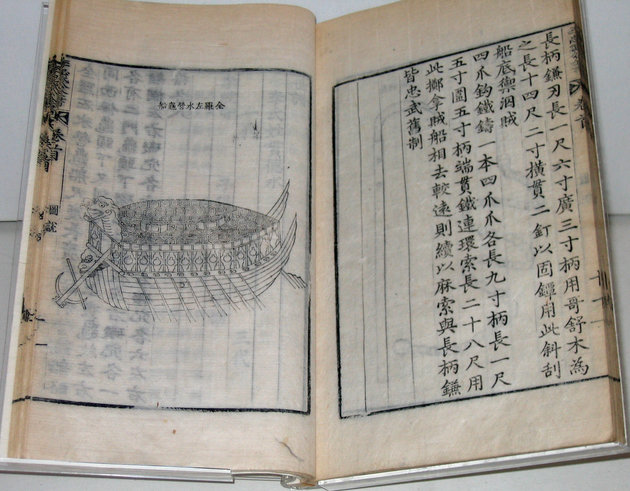 長柄鎌刃長一尺六寸廣三寸柄用哥舒木為
之長十四尺二寸橫貫二釘以固鐔用此斜刮
船底禦泅賊
四爪鉤鐵鑄一本四爪爪各長九寸柄長一尺
五寸圍五寸柄端貫鐵連環索長二十八尺用
此擲拿賊船相去較遠則續以麻索與長柄鎌
皆忠武舊制
全羅左水營龜船
卷首
圖說